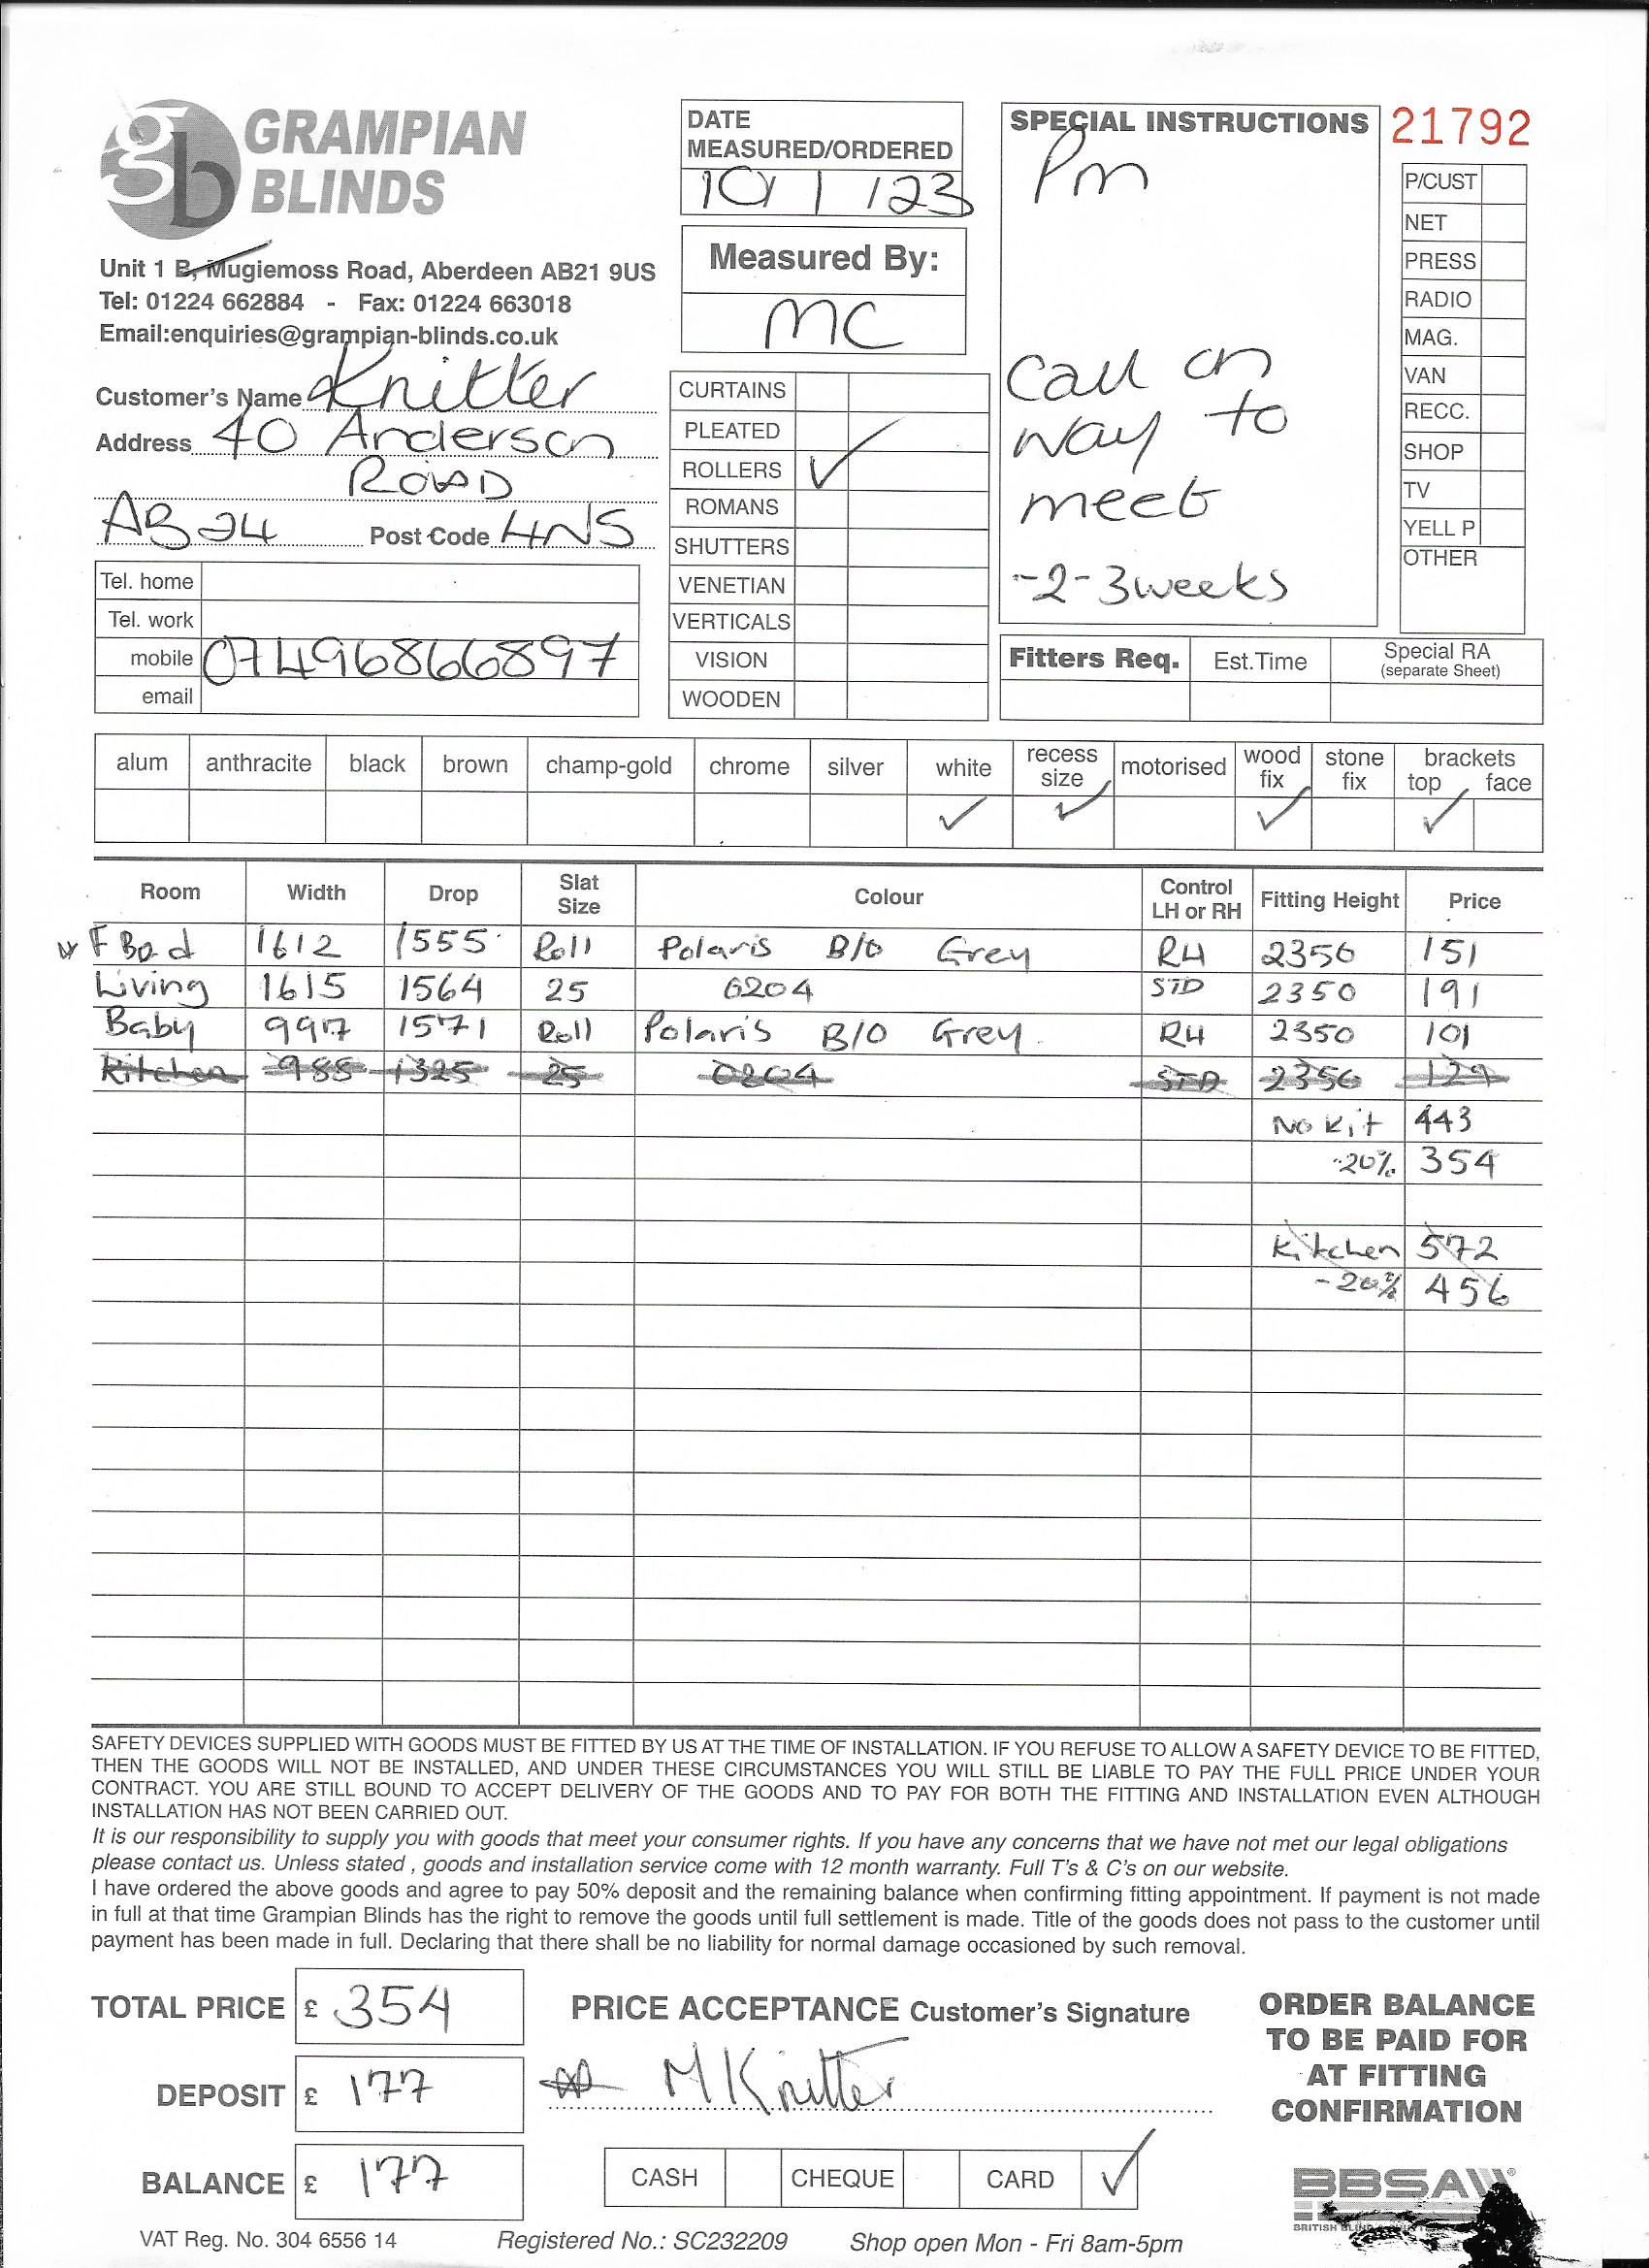 GRAMPIAN
BLINDS
Unit 1 B, Mugiemoss Road, Aberdeen AB21 9US
Tel: 01224 662884 - Fax: 01224 663018
Email:enquiries@grampian-blinds.co.uk
Customer's Name Knitter
Address 40 Anderson
ROAD
AB24 Post Code 4NS
Tel. home
Tel. work
mobile 07496866897
email
DATE
MEASURED/ORDERED
10/1/23
Measured By:
MC
CURTAINS
PLEATED
ROLLERS ✓
ROMANS
SHUTTERS
VENETIAN
VERTICALS
VISION
WOODEN
SPECIAL INSTRUCTIONS
Pm
Call on
way to
meet
-2-3weeks
21792
P/CUST
NET
PRESS
RADIO
MAG.
VAN
RECC.
SHOP
TV
YELL P
OTHER
Fitters Req. Est.Time Special RA
(separate Sheet)
alum anthracite black brown champ-gold chrome silver white recess size motorised wood fix stone fix brackets top face
✓ ✓ ✓ ✓
Room Width Drop Slat Size Colour Control LH or RH Fitting Height Price
F Bed 1612 1555 Roll Polaris B/O Grey RH 2350 151
Living 1615 1564 25 0204 STD 2350 191
Baby 997 1571 Roll Polaris B/O Grey RH 2350 101
Kitchen 988 1325 25 0204 STD 2350 129
No Kit 443
-20% 354
Kitchen 572
-20% 456
SAFETY DEVICES SUPPLIED WITH GOODS MUST BE FITTED BY US AT THE TIME OF INSTALLATION. IF YOU REFUSE TO ALLOW A SAFETY DEVICE TO BE FITTED,
THEN THE GOODS WILL NOT BE INSTALLED, AND UNDER THESE CIRCUMSTANCES YOU WILL STILL BE LIABLE TO PAY THE FULL PRICE UNDER YOUR
CONTRACT. YOU ARE STILL BOUND TO ACCEPT DELIVERY OF THE GOODS AND TO PAY FOR BOTH THE FITTING AND INSTALLATION EVEN ALTHOUGH
INSTALLATION HAS NOT BEEN CARRIED OUT.
It is our responsibility to supply you with goods that meet your consumer rights. If you have any concerns that we have not met our legal obligations
please contact us. Unless stated , goods and installation service come with 12 month warranty. Full T's & C's on our website.
I have ordered the above goods and agree to pay 50% deposit and the remaining balance when confirming fitting appointment. If payment is not made
in full at that time Grampian Blinds has the right to remove the goods until full settlement is made. Title of the goods does not pass to the customer until
payment has been made in full. Declaring that there shall be no liability for normal damage occasioned by such removal.
TOTAL PRICE £ 354
DEPOSIT £ 177
BALANCE £ 177
PRICE ACCEPTANCE Customer's Signature
M Knitter
CASH CHEQUE CARD ✓
ORDER BALANCE
TO BE PAID FOR
AT FITTING
CONFIRMATION
BBSA
BRITISH
VAT Reg. No. 304 6556 14 Registered No.: SC232209 Shop open Mon - Fri 8am-5pm